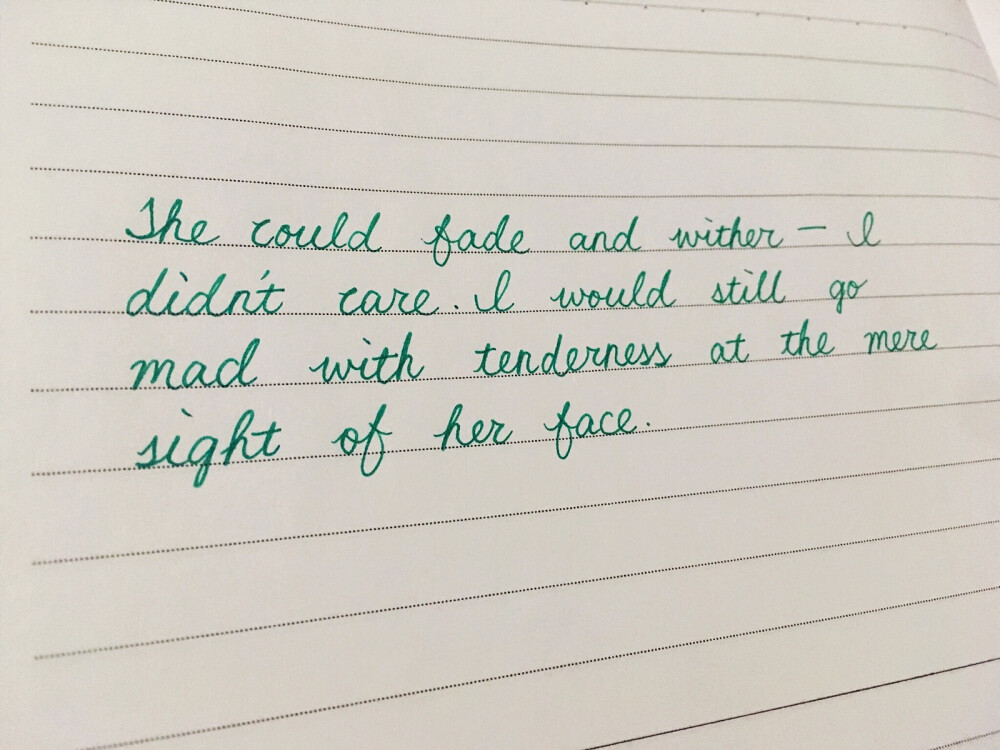 She could fade and wither – I
didn't care. I would still go
mad with tenderness at the mere
sight of her face.